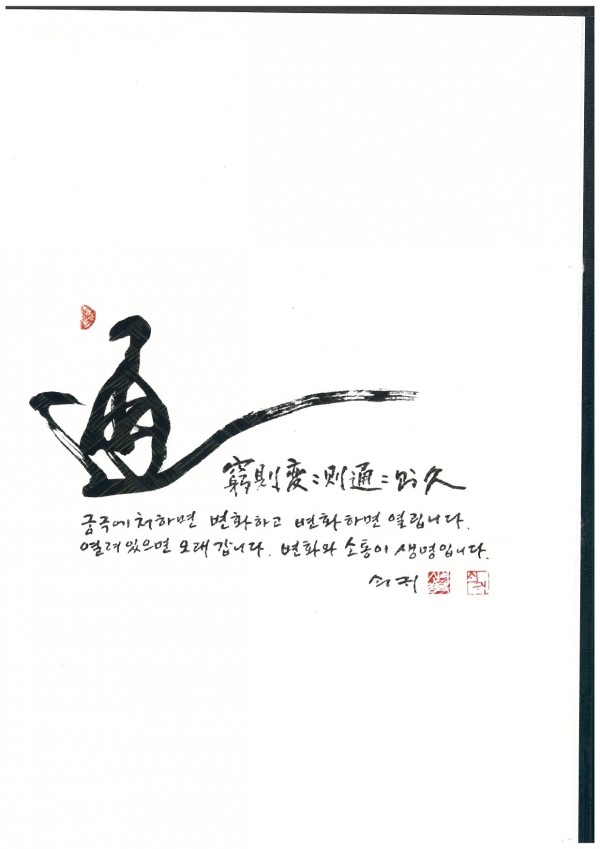 通
窮則變〻則通〻則久
궁극에 처하면 변화하고 변화하면 열립니다.
열려있으면 오래 갑니다. 변화와 소통이 생명입니다.
쇠귀